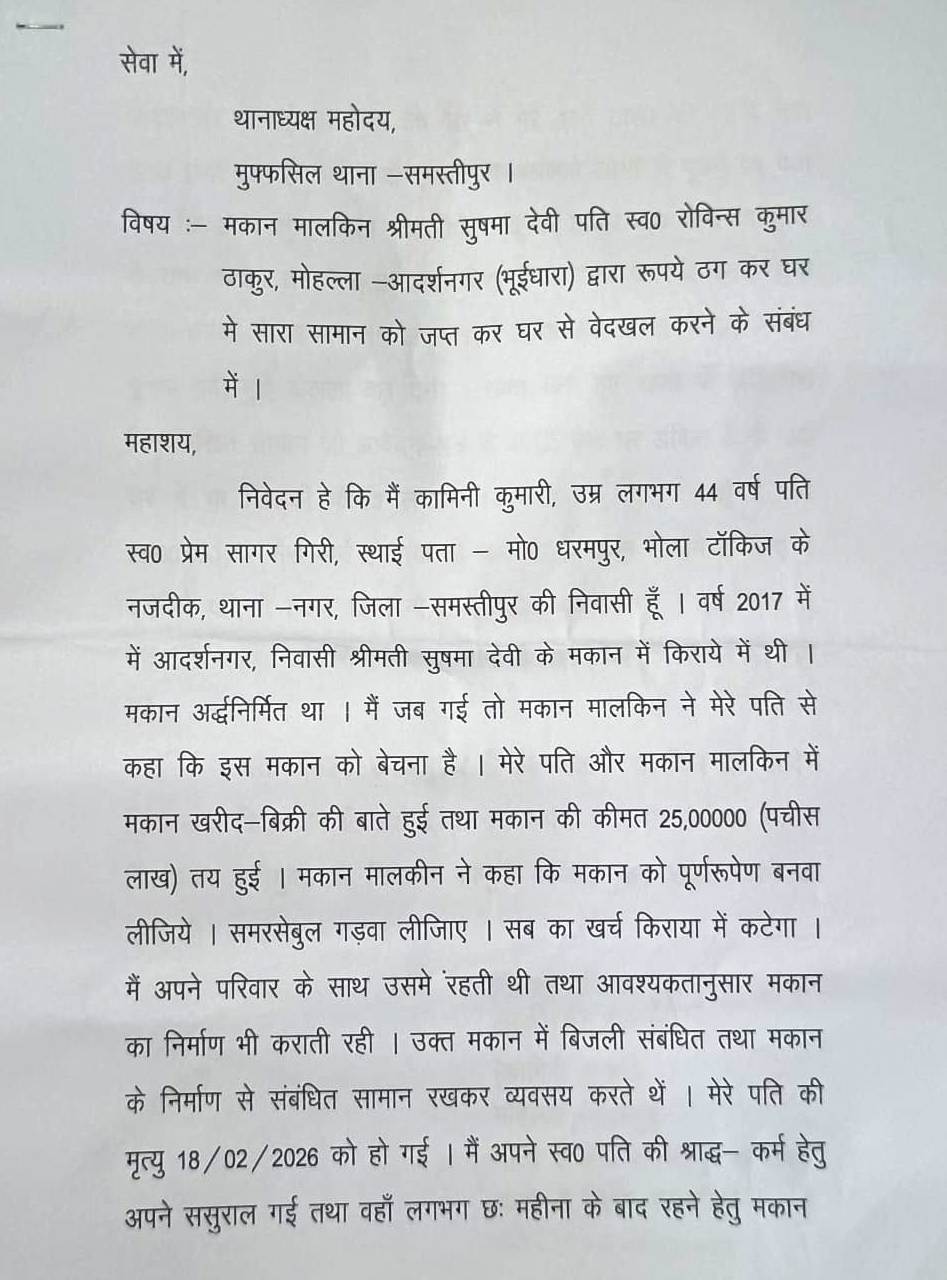 सेवा में,
थानाध्यक्ष महोदय,
मुफ्फसिल थाना –समस्तीपुर ।
विषय :– मकान मालकिन श्रीमती सुषमा देवी पति स्व0 रोविन्स कुमार
ठाकुर, मोहल्ला –आदर्शनगर (भूईधारा) द्वारा रूपये ठग कर घर
मे सारा सामान को जप्त कर घर से वेदखल करने के संबंध
में ।
महाशय,
निवेदन हे कि मैं कामिनी कुमारी, उम्र लगभग 44 वर्ष पति
स्व0 प्रेम सागर गिरी, स्थाई पता – मो0 धरमपुर, भोला टॉकिज के
नजदीक, थाना –नगर, जिला –समस्तीपुर की निवासी हूँ । वर्ष 2017 में
में आदर्शनगर, निवासी श्रीमती सुषमा देवी के मकान में किराये में थी ।
मकान अर्द्धनिर्मित था । मैं जब गई तो मकान मालकिन ने मेरे पति से
कहा कि इस मकान को बेचना है । मेरे पति और मकान मालकिन में
मकान खरीद–बिक्री की बाते हुई तथा मकान की कीमत 25,00000 (पचीस
लाख) तय हुई । मकान मालकीन ने कहा कि मकान को पूर्णरूपेण बनवा
लीजिये । समरसेबुल गड़वा लीजिाए । सब का खर्च किराया में कटेगा ।
मैं अपने परिवार के साथ उसमे रंहती थी तथा आवश्यकतानुसार मकान
का निर्माण भी कराती रही । उक्त मकान में बिजली संबंधित तथा मकान
के निर्माण से संबंधित सामान रखकर व्यवसय करते थें । मेरे पति की
मृत्यु 18/02/2026 को हो गई । मैं अपने स्व0 पति की श्राद्ध– कर्म हेतु
अपने ससुराल गई तथा वहाँ लगभग छः महीना के बाद रहने हेतु मकान